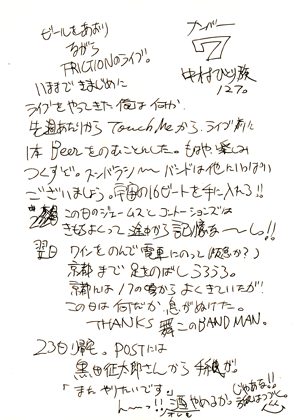 ビールをあおり
ながら
FRICTIONのライブ。
ナンバー
7
中村ひとり旅
127。
いままできまじめに
ライブをやってきた俺は何か
先週あたりからTouch Meから、ライブ前に
1本Beerをのむことんした。もはや楽しみ
つくすど。スンバラシーバンドは他にいっぱい
ございましょう。宇宙の16ビートを手に入れろ!!
この日のジェームスとコントーションズは
きもちよくって途中から記憶あ〜〜し!!
翌日 ワインをのんで電車にのって(阪急か?)
京都まで足をのばしうろうろ。
京都は17の時からよくきていたが
この日は何だか息がぬけた。
THANKS 舞このBAND MAN。
23日帰宅。POSTには
黒田征太郎さんから手紙が。
「またやりたいです。」
ん〜〜っ!!酒やめるか。
オレも
じゃあな!!